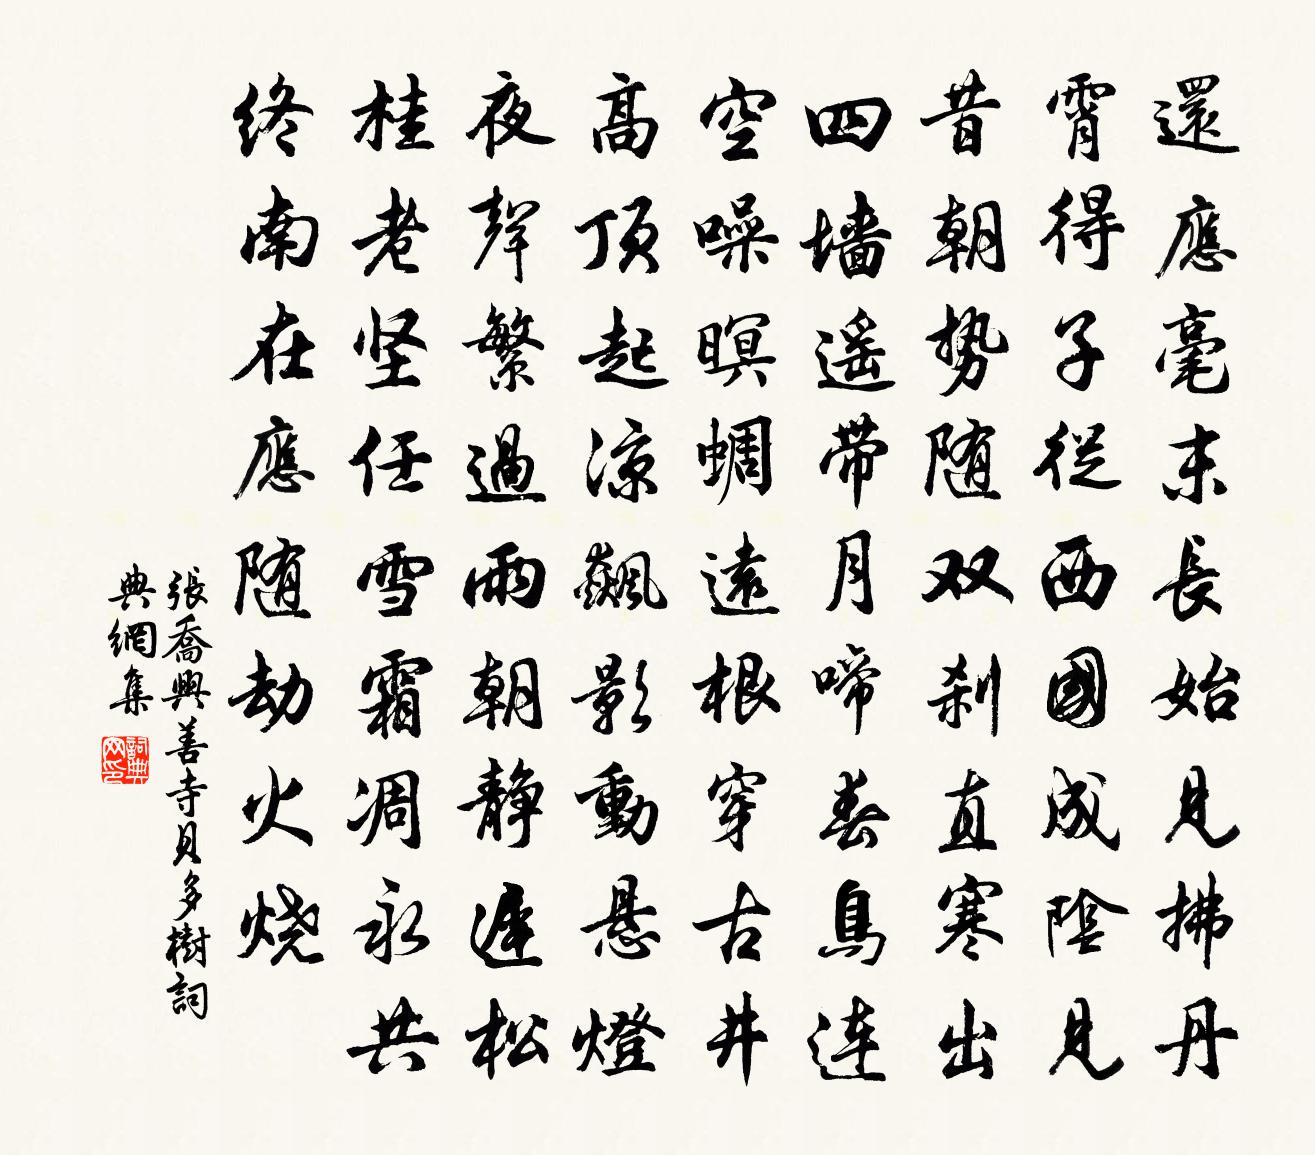 還應毫末長始見拂丹
霄得子從西國成陰見
昔朝势随双刹直寒出
四墙遥带月啼春鳥连
空噪暝蜩遠根穿古井
高頂起涼飆影動悬燈
夜聲繁過雨朝静遲松
桂老坚任雪霜凋永共
终南在應随劫火烧
張喬興善寺貝多樹詞
典網集
詞典
网印